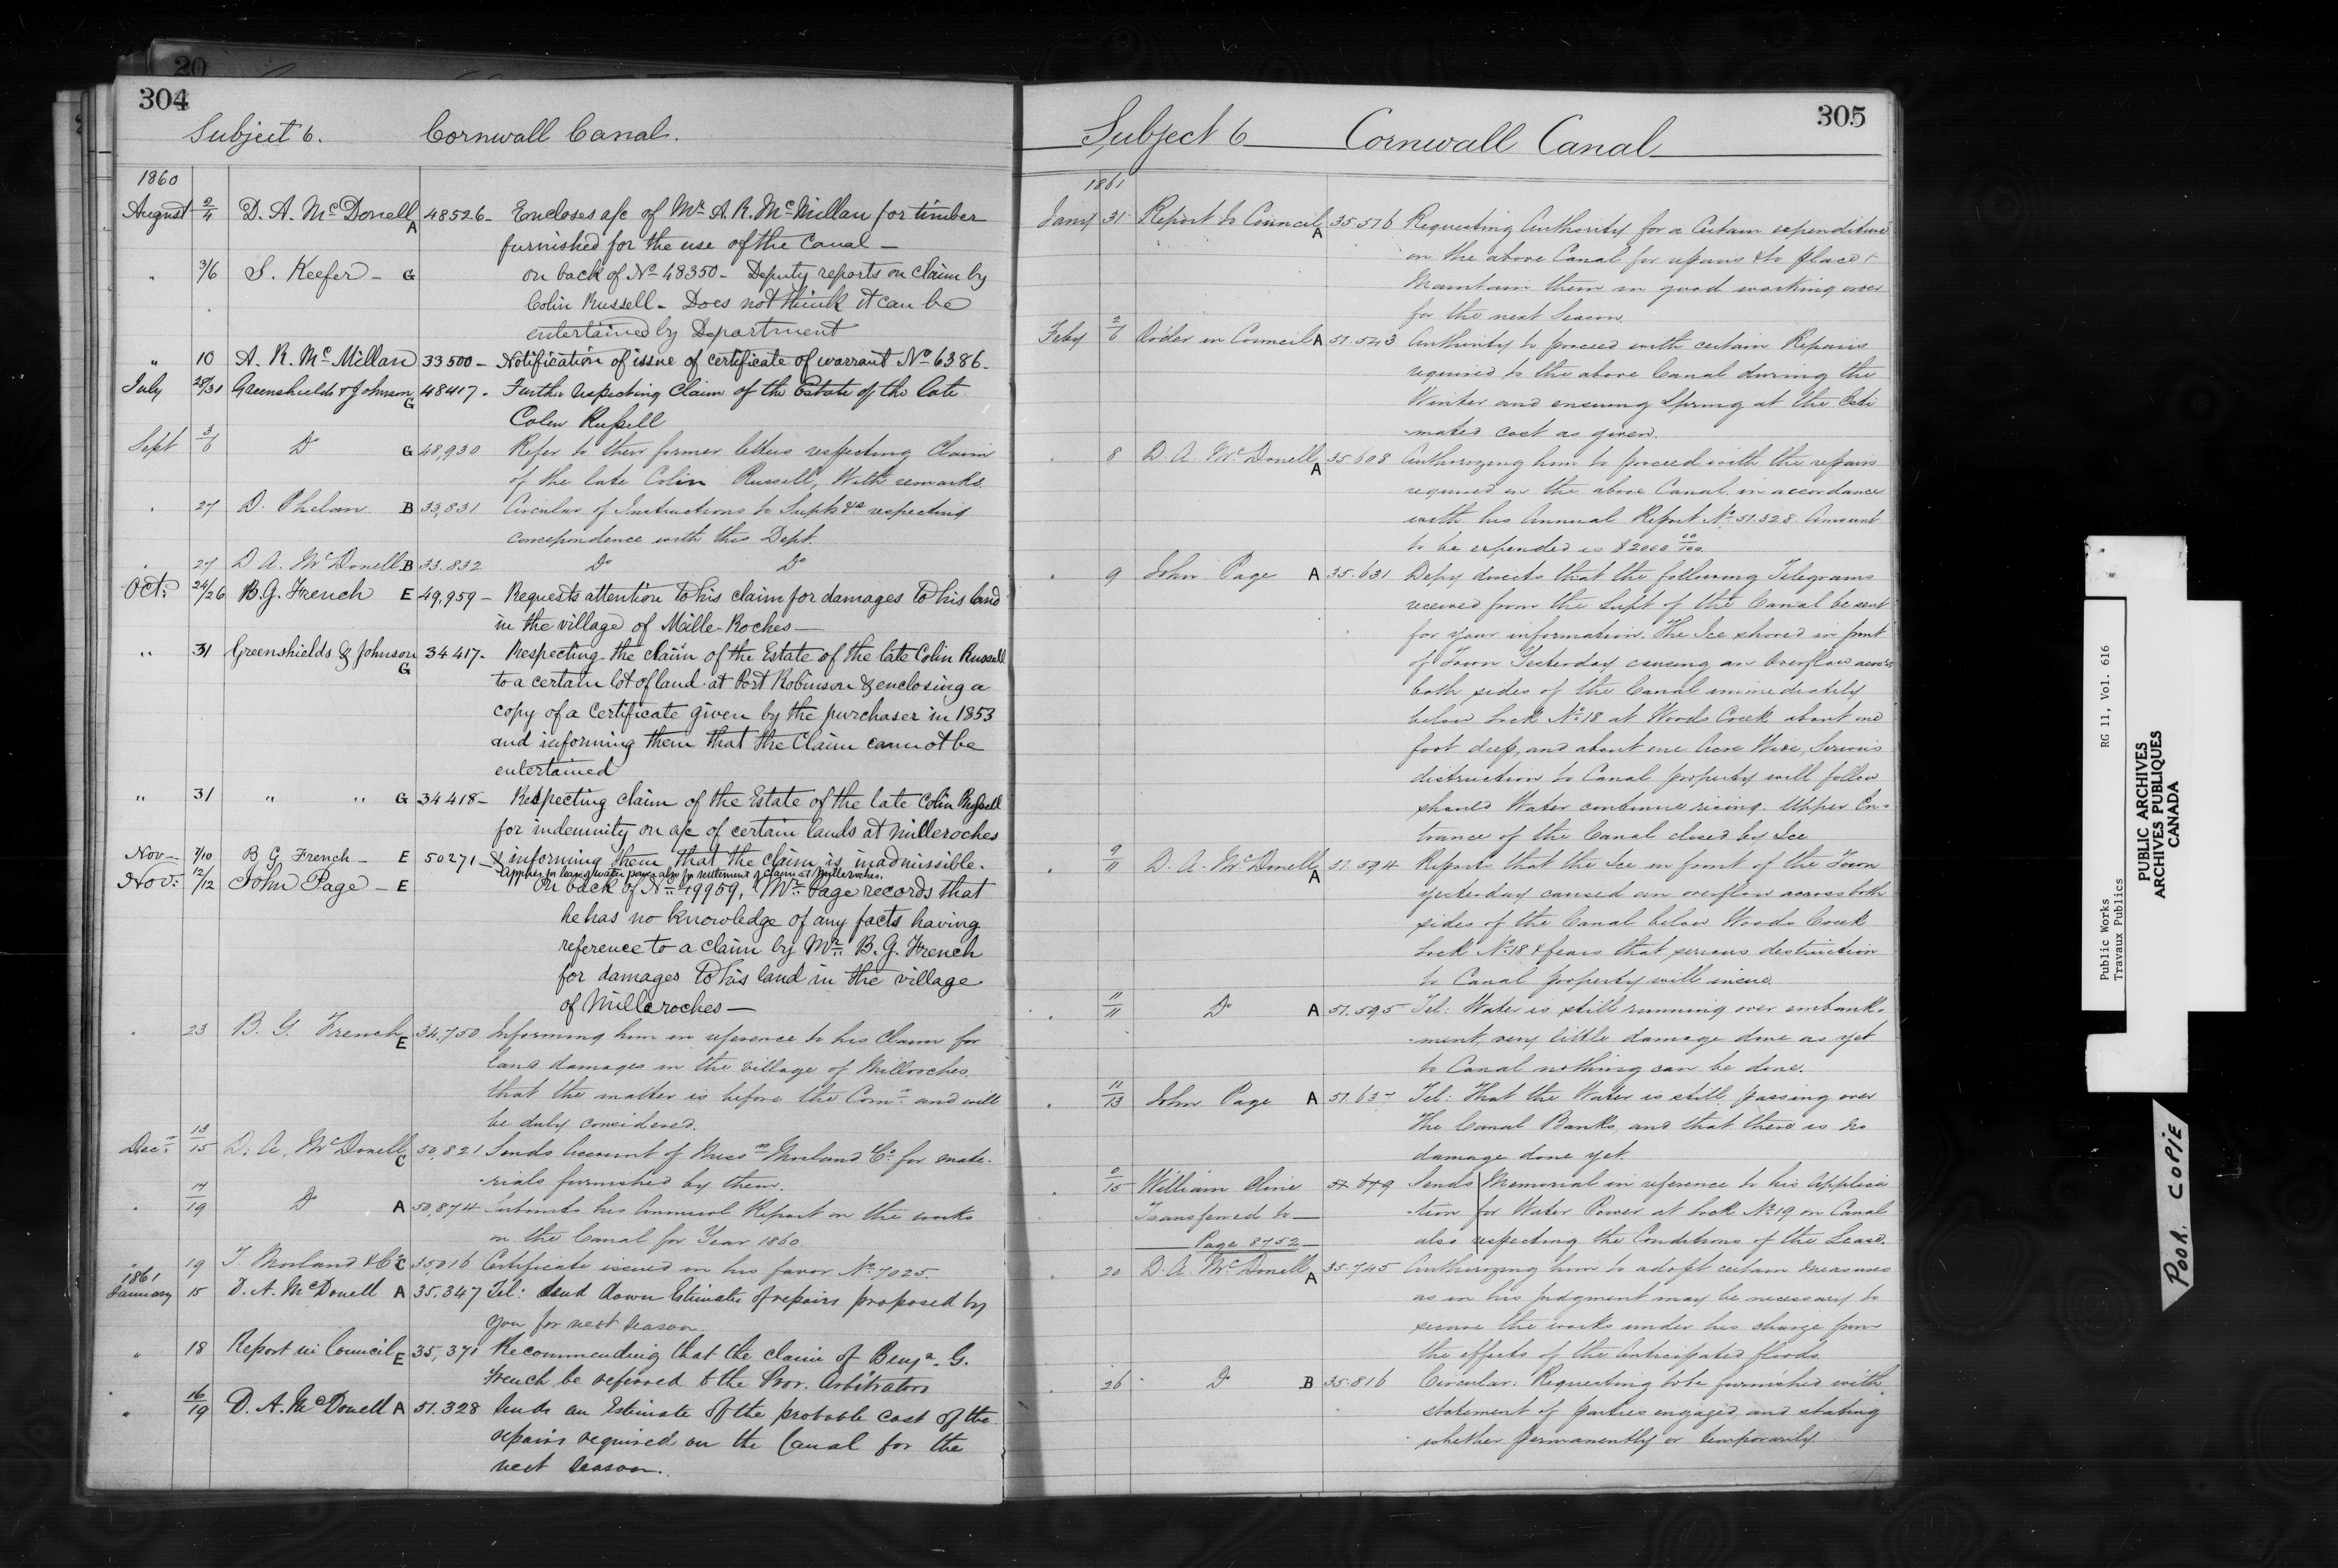 20
304
Subject 6. Cornwall Canal.
1860
August 2/4 D. A. McDonell A 48526 - Encloses a/c of Mr. A. R. McMillan for timber
furnished for the use of the Canal —
" 3/6 S. Keefer - G on back of No 48350 - Deputy reports on claim by
Colin Russell - Does not think it can be
entertained by Department
" 10 A. R. McMillan 33500 - Notification of issue of certificate of warrant No 6386 -
July 28/31 Greenshields & Johnson G 48417 - Further respecting Claim of the Estate of the late
Colin Russell
Sept 3/6 Do G 48,930 Refer to their former letters respecting Claim
of the late Colin Russell, With remarks
" 27 D. Phelan B 33,831 Circular of Instructions to Supts &c respecting
correspondence with this Dept.
" 27 D. A. McDonell B 33.832 Do Do
Oct: 24/26 B. G. French E 49,959 - Requests attention to his claim for damages to his land
in the village of Mille-Roches —
" 31 Greenshields & Johnson G 34417 - Respecting the claim of the Estate of the late Colin Russell
to a certain lot of land at Port Robinson & enclosing a
copy of a Certificate given by the purchaser in 1853
and informing them that the Claim cannot be
entertained
" 31 " " G 34418 - Respecting claim of the Estate of the late Colin Russell
for indemnity on a/c of certain lands at Milleroches
& informing them that the claim is inadmissible.
Nov - 7/10 B. G. French - E 50271 - Applies for lease of water power also for settlement of claim at Milleroches.
Nov: 12/12 John Page - E On back of No 49959, Mr. Page records that
he has no knowledge of any facts having
reference to a claim by Mr. B. G. French
for damages to his land in the village
of Milleroches —
" 23 B. G. French E 34,750 Informing him in reference to his Claim for
land damages in the village of Milleroches,
that the matter is before the Comr. and will
be duly considered.
Decr. 13/15 D. A. McDonell C 50,821 Sends Account of Messrs Morland & Co. for mate-
rials furnished by them.
" 17/19 Do A 50,874 Submits his Annual Report on the works
on the Canal for Year 1860.
" 19 T. Morland & Co C 35016 Certificate issued in his favor No 7025.
1861
January 15 D. A. McDonell A 35,347 Tel: Send down Estimates of repairs proposed by
you for next season.
" 18 Report in Council E 35,371 Recommending that the claim of Benja. G.
French be referred to the Prov. Arbitrators
" 16/19 D. A. McDonell A 51.328 Sends an Estimate of the probable cost of the
repairs required on the Canal for the
next season.
305
Subject 6 Cornwall Canal
1861
Jany 31 Report to Council A 35.516 Requesting Authority for a Certain expenditure
on the above Canal for repairs & to place &
Maintain them in good working order
for the next Season.
Feby 2/6 Order in Council A 51.543 Authority to proceed with certain Repairs
required to the above Canal during the
Winter and ensuing Spring at the Esti
mated cost as given.
" 8 D. A. McDonell A 35.608 Authorizing him to proceed with the repairs
required on the above Canal in accordance
with his Annual Report No 51.328. Amount
to be expended is $2000 00/100.
" 9 John Page A 35.631 Depy directs that the following Telegrams
received from the Supt of the Canal be sent
for your information. The Ice shoved in front
of Town Yesterday causing an Overflow across
both sides of the Canal immediately
below Lock No 18 at Woods Creek about one
foot deep, and about one Acre Wide, Serious
distruction to Canal property will follow
should Water continue rising. Upper En-
trance of the Canal closed by Ice
" 9/11 D. A. McDonell A 51.594 Reports that the Ice in front of the Town
yesterday caused an overflow across both
sides of the Canal below Woods Creek
Lock No 18 & fears that serious destruction
to Canal property will insue.
" 11/11 Do A 51.595 Tel: Water is still running over embank-
ment, very little damage done as yet
to Canal nothing can be done.
" 11/13 John Page A 51.637 Tel: That the Water is still passing over
the Canal Banks, and that there is no
damage done yet.
" /15 William Cline 51 679 Sends Memorial in reference to his Applica
Transferred to — tion for Water Power at Lock No 19 on Canal
Page 8752 also respecting the Conditions of the Lease.
" 20 D. A. McDonell A 35.745 Authorizing him to adopt certain measures
as in his judgment may be necessary to
secure the works under his charge from
the effects of the anticipated floods.
" 26 Do B 35.816 Circular: Requesting to be furnished with
statement of parties engaged, and stating
whether permanently or temporarily.
Public Works RG 11, Vol. 616
Travaux Publics
PUBLIC ARCHIVES
ARCHIVES PUBLIQUES
CANADA
POOR COPIE